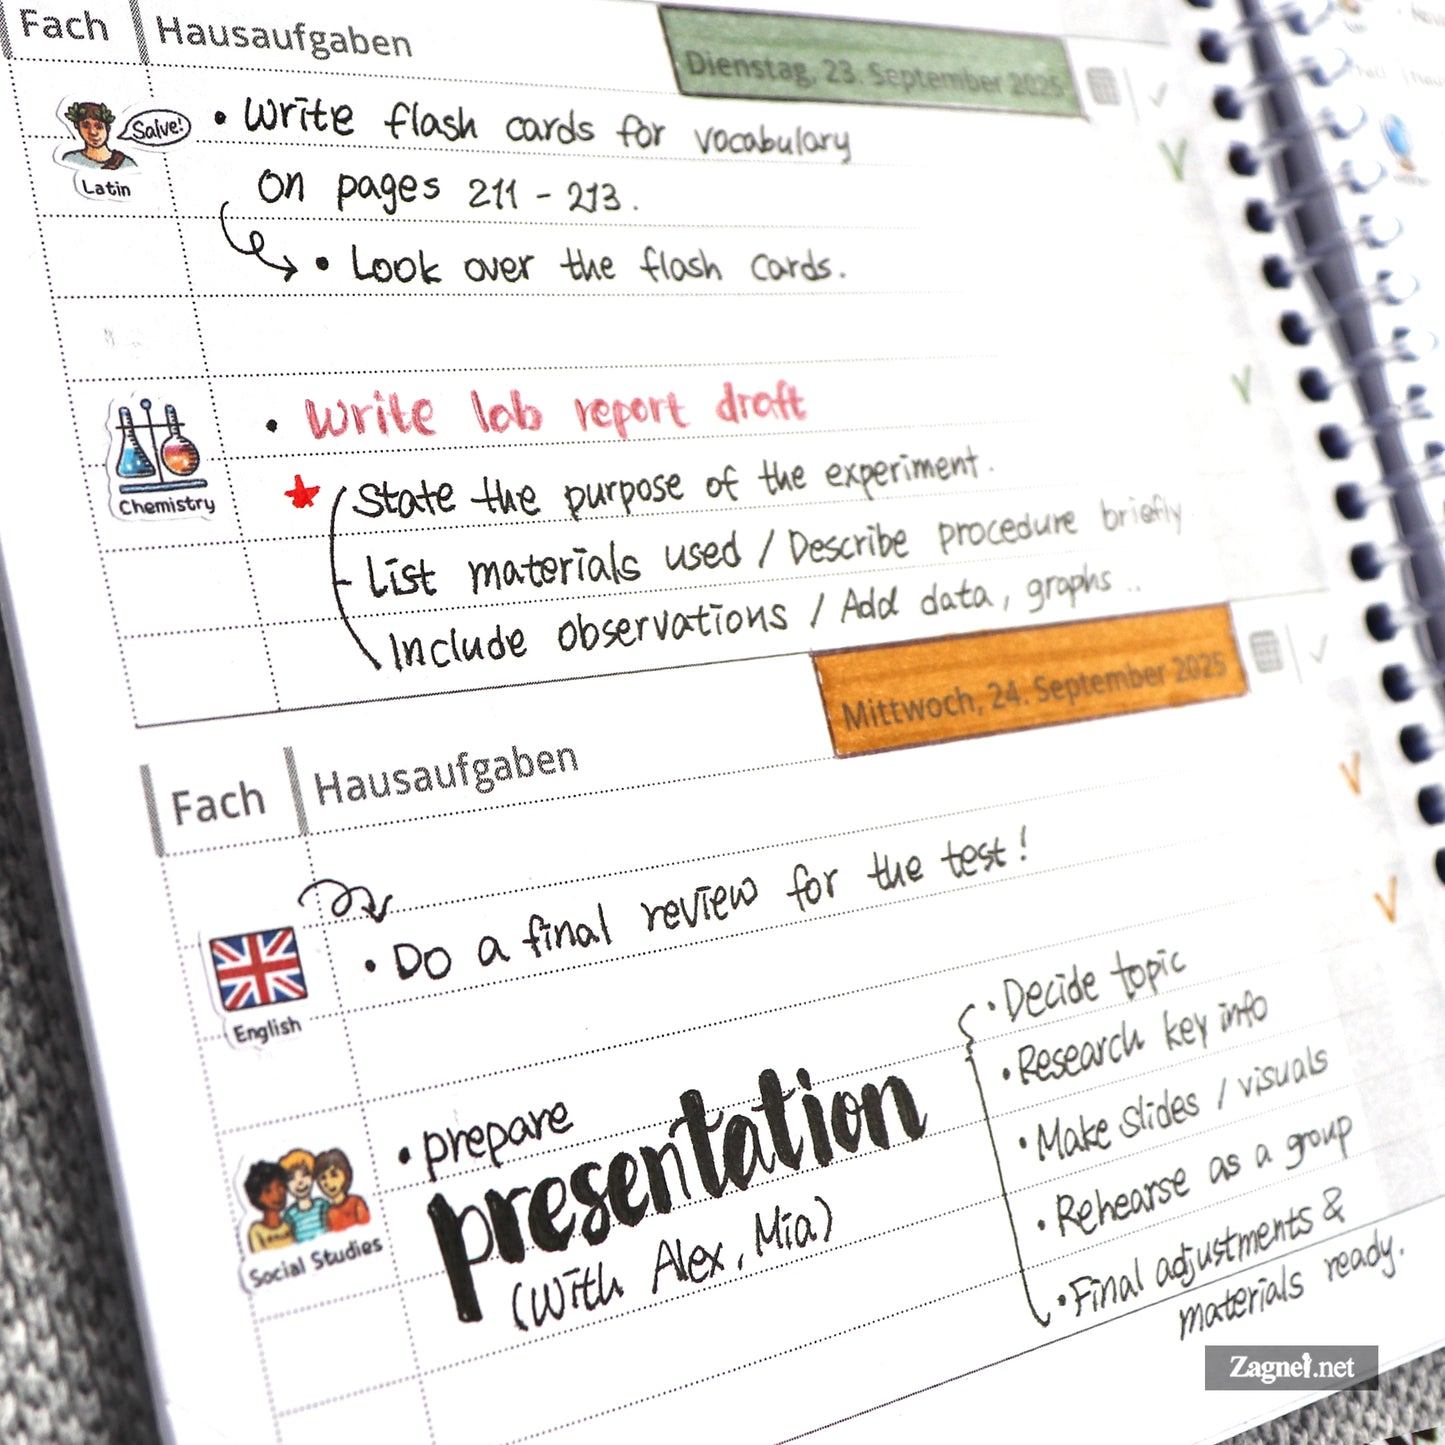 Fach Hausaufgaben Dienstag, 23. September 2025
Salve!
Latin
• Write flash cards for vocabulary
on pages 211 - 213.
• Look over the flash cards.
Chemistry
• Write lab report draft
State the purpose of the experiment.
List materials used / Describe procedure briefly
Include observations / Add data, graphs ..
Mittwoch, 24. September 2025
Fach Hausaufgaben
English
• Do a final review for the test!
Social Studies
• prepare
presentation
(with Alex, Mia)
• Decide topic
• Research key info
• Make slides / visuals
• Rehearse as a group
• Final adjustments &
materials ready.
Zagnei.net